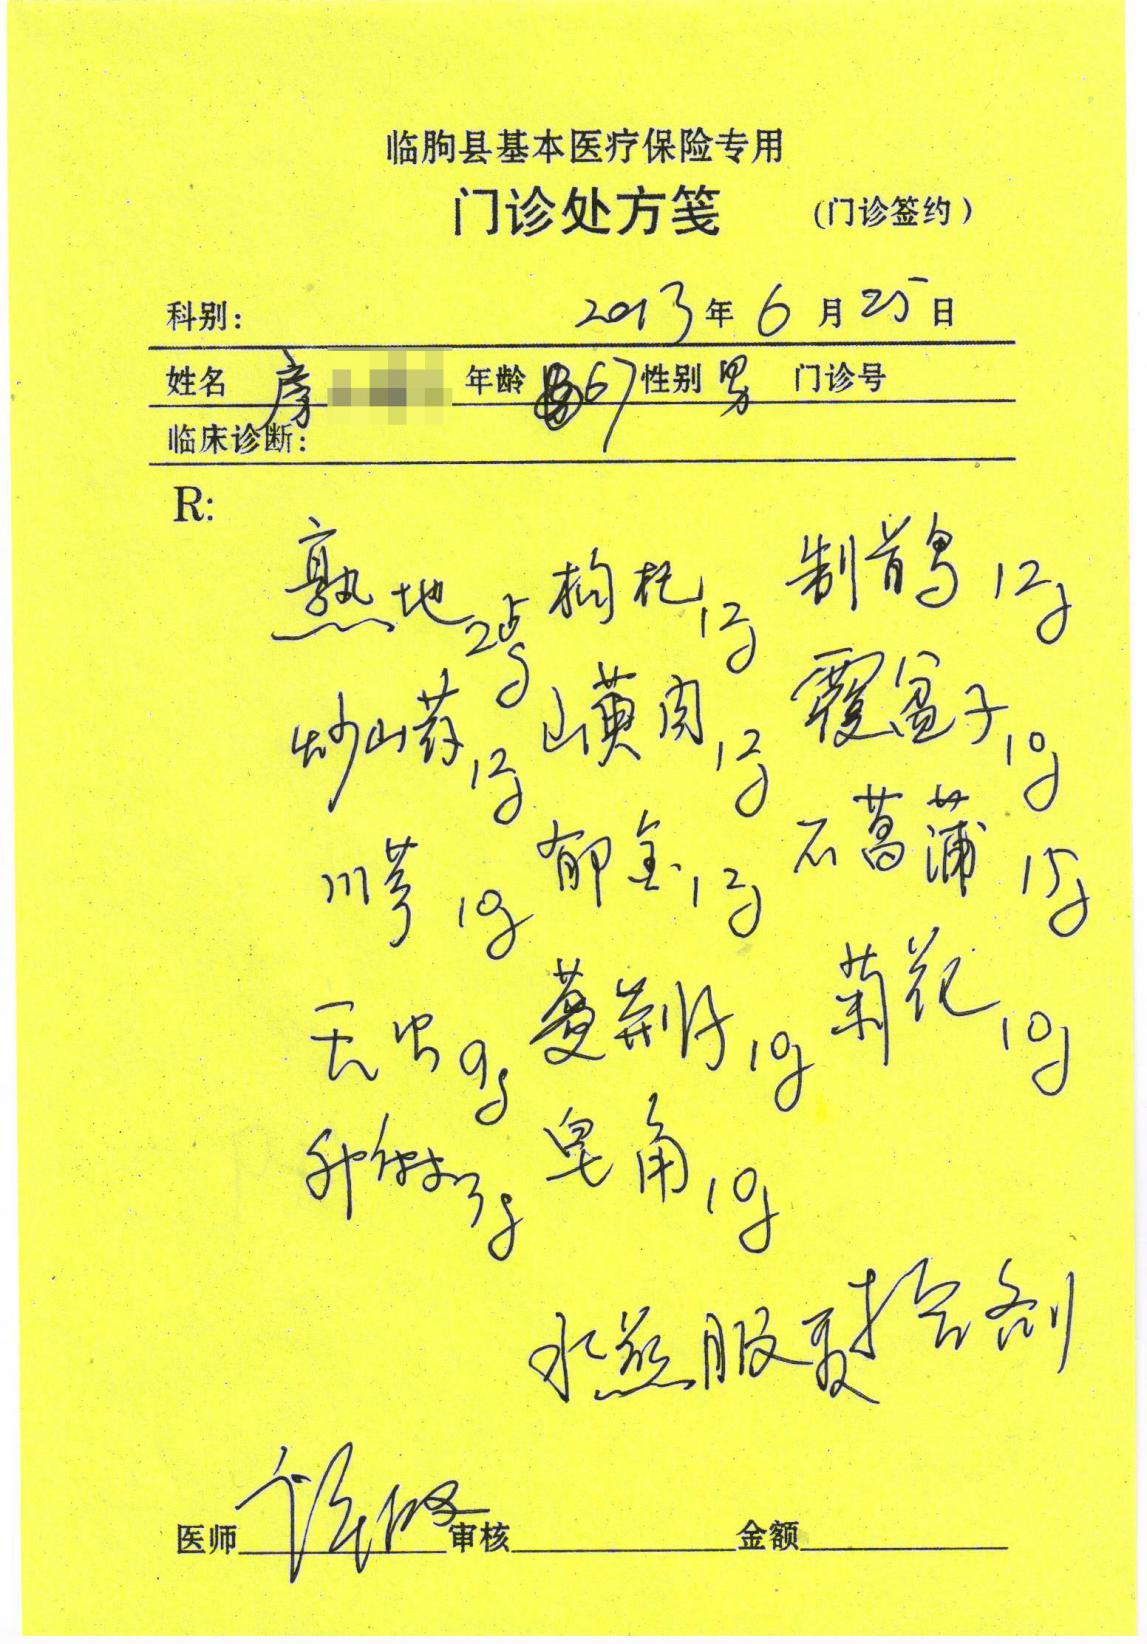 临朐县基本医疗保险专用
门诊处方笺 (门诊签约)
科别: 2013年6月25日
姓名 房 年龄 67 性别 男 门诊号
临床诊断:
R:
熟地25g 枸杞12g 制首乌12g
炒山药12g 山萸肉12g 覆盆子10g
川芎10g 郁金12g 石菖蒲15g
天虫9g 蔓荆子10g 菊花10g
升麻3g 皂角10g
水煎服 剂
医师 审核 金额